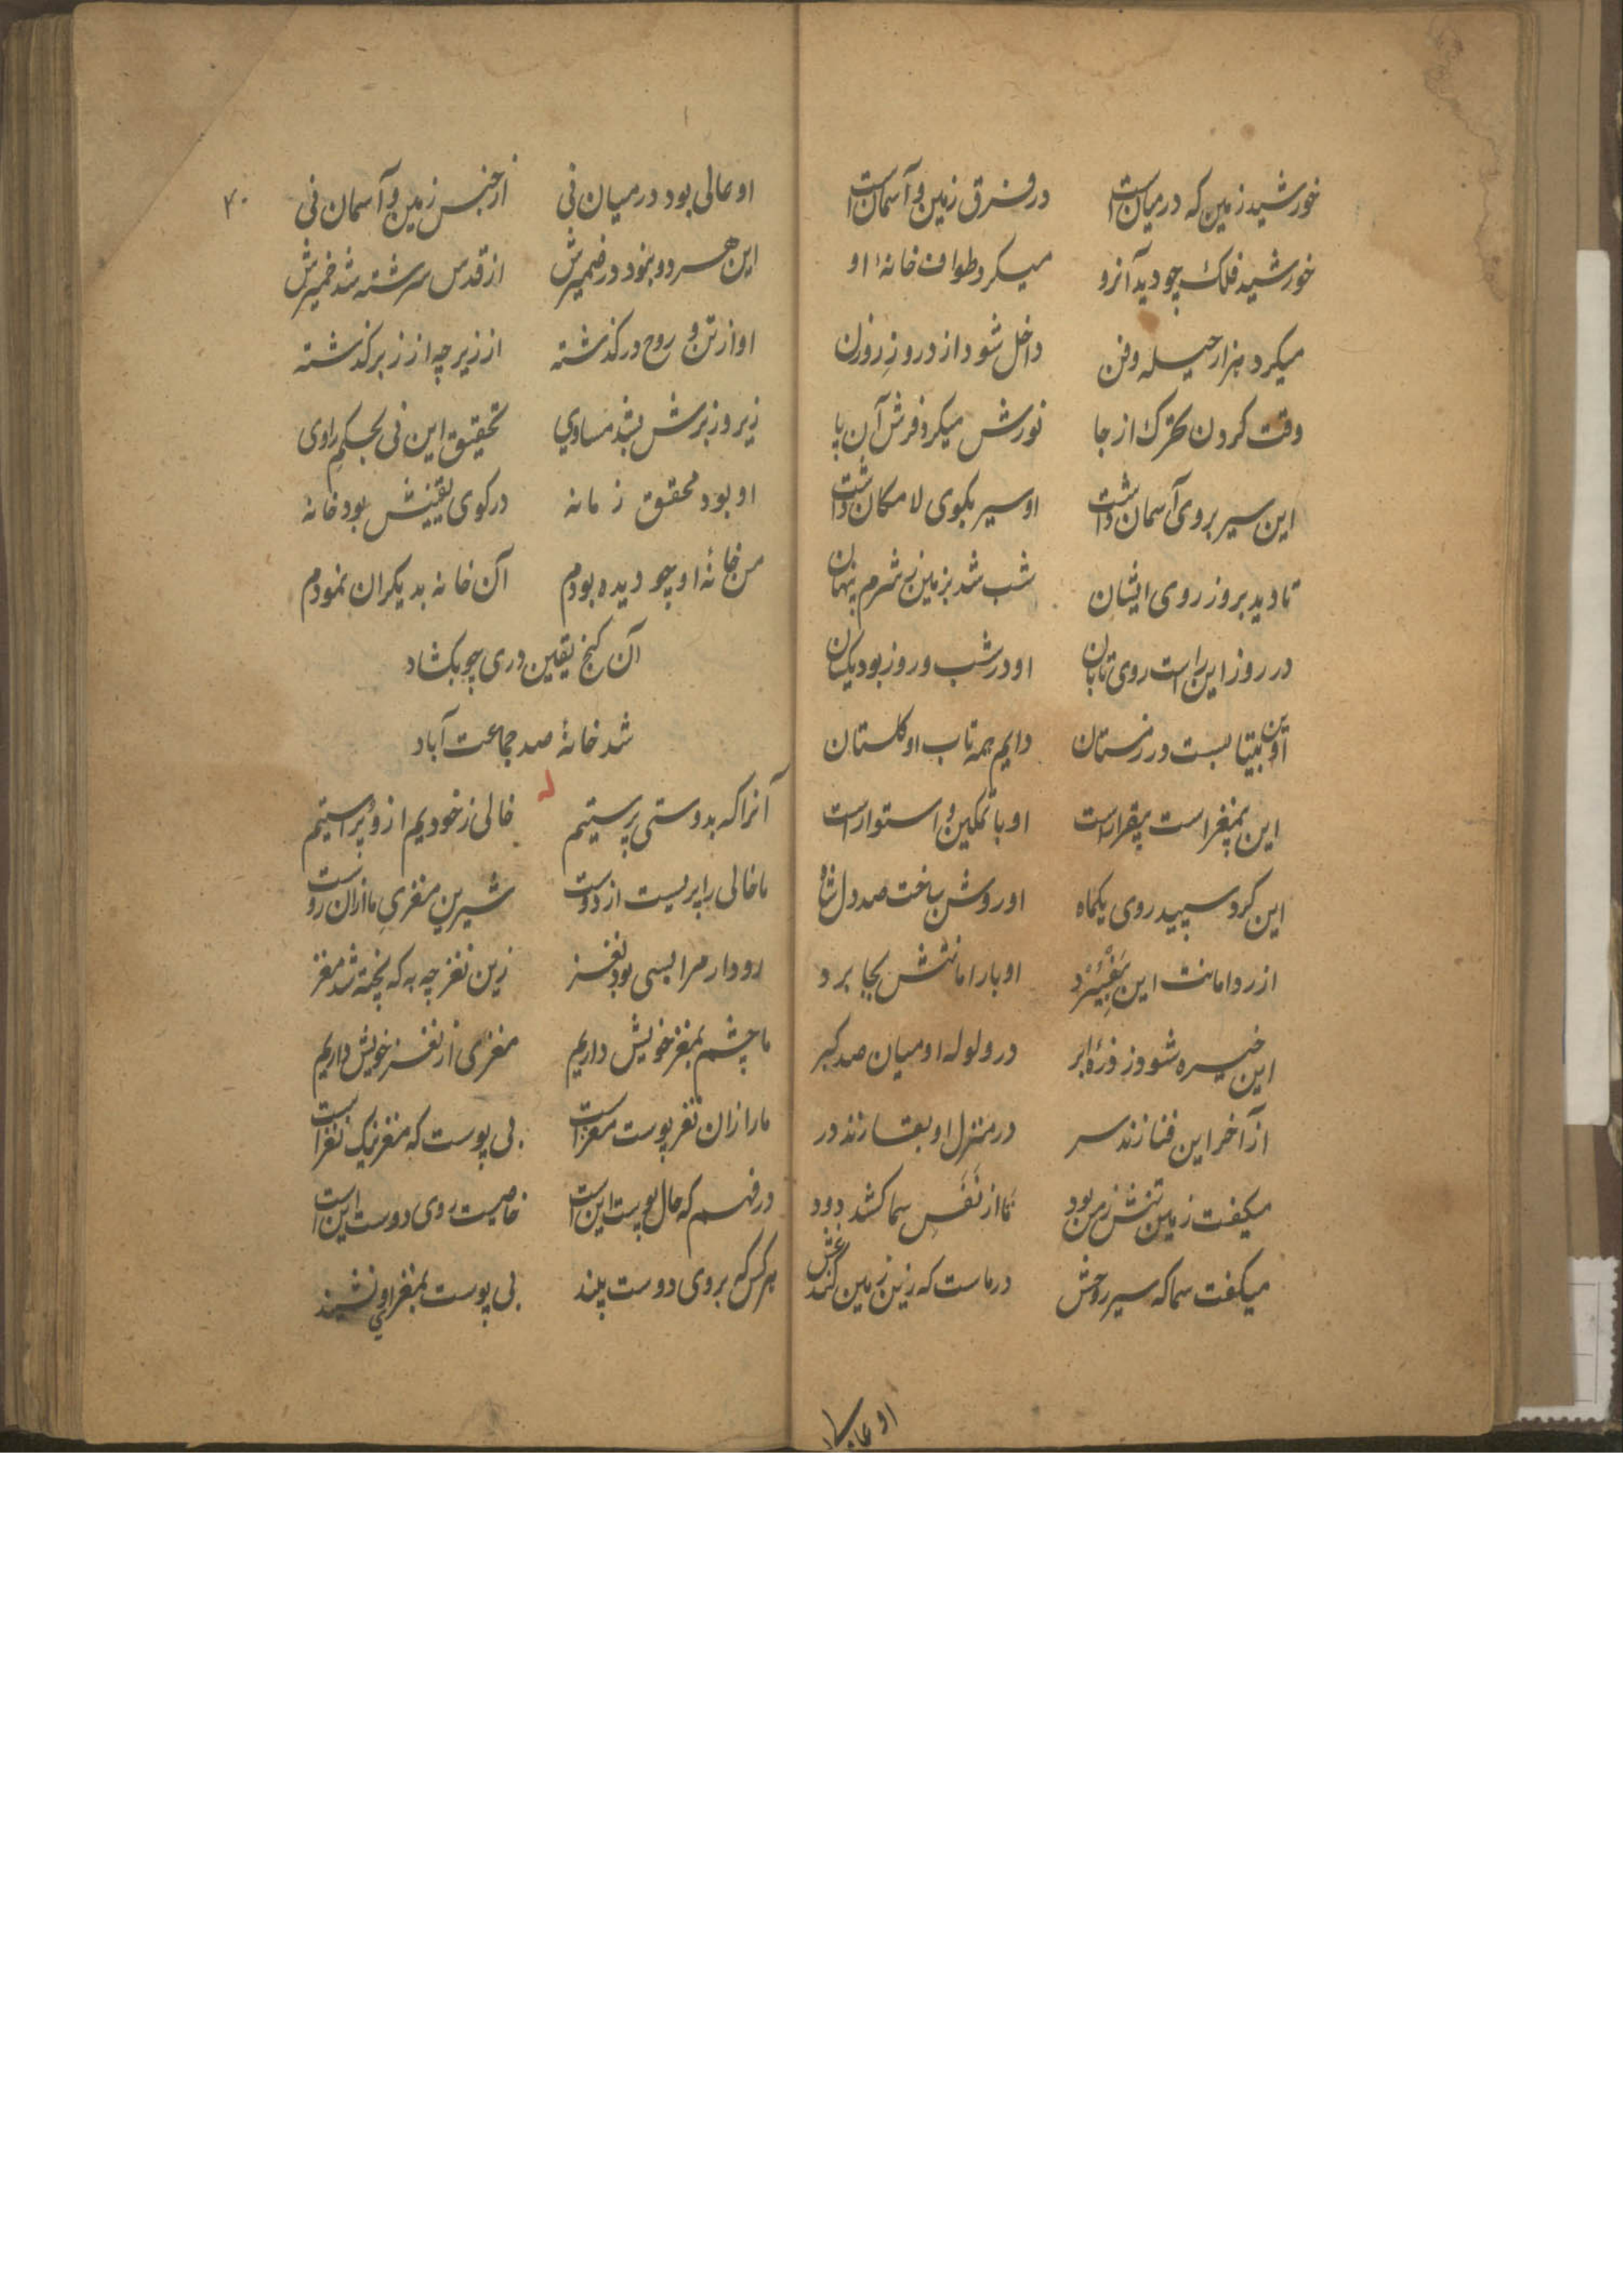 خورشید زمین که در میان است در فرق زمین و آسمان است
خورشید فلک چو دید آنرو میکرد طواف خانهٔ او
میکرد هزار حیله و فن داخل شود از در و ز روزن
وقت کردن تحرک از جا نورش میکرد فرش آن پا
این سیر بروی آسمان داشت او سیر بکوی لامکان داشت
تا دید بروز روی ایشان شب شد بزمین ز شرم پنهان
در روز این راست روی تابان او در شب و روز بود یکسان
این بیتابست در زمستان دایم همه تاب او گلستان
این بیمغز است بیقرار است او با تمکین و استوار است
این کرد سپید روی یکماه او روشن ساخت صد دل شاه
از رد امانت این او بار امانتش بجا برد
این خیره شود ز ذرهٔ ابر در ولوله او میان صد گبر
از آخر این فنا زند سر در منزل او بقا زند در
میگفت زمین تنش ز من بود تا از نفس سما کشد دود
میگفت سما که سیر روحش در ماست که زین زمین کند
او عالی
۴۰
او عالی بود در میان نی از جنس زمین و آسمان نی
این هر دو نبود در ضمیرش از قدس سرشته شد خمیرش
او از تن و روح در گذشته از زیر چه از زبر گذشته
زیر و زبرش بشد مساوی تحقیق این نی بحکم راوی
او بود محقق زمانه در کوی یقینش بود خانه
من خانهٔ او چو دیده بودم آن خانه بدیگران نمودم
آن گنج یقین دری چو بگشاد
شد خانهٔ صد جماعت آباد
آنرا که بدوستی پرستیم خالی ز خودیم از و پر استیم
ما خالی را پریست از دوست شیرین مغزی ما ازان روست
رو دار مرا بسی بود نغز زین نغز چه به که پخته شد مغز
ما چشم بمغز خویش داریم مغزی از نغز خویش داریم
ما را زان نغز پوست مغز است بی پوست که مغز نیک نغز است
در فهم که حال پوست این است خاصیت روی دوست این است
هر کس که بروی دوست بیند بی پوست بمغز او نشیند